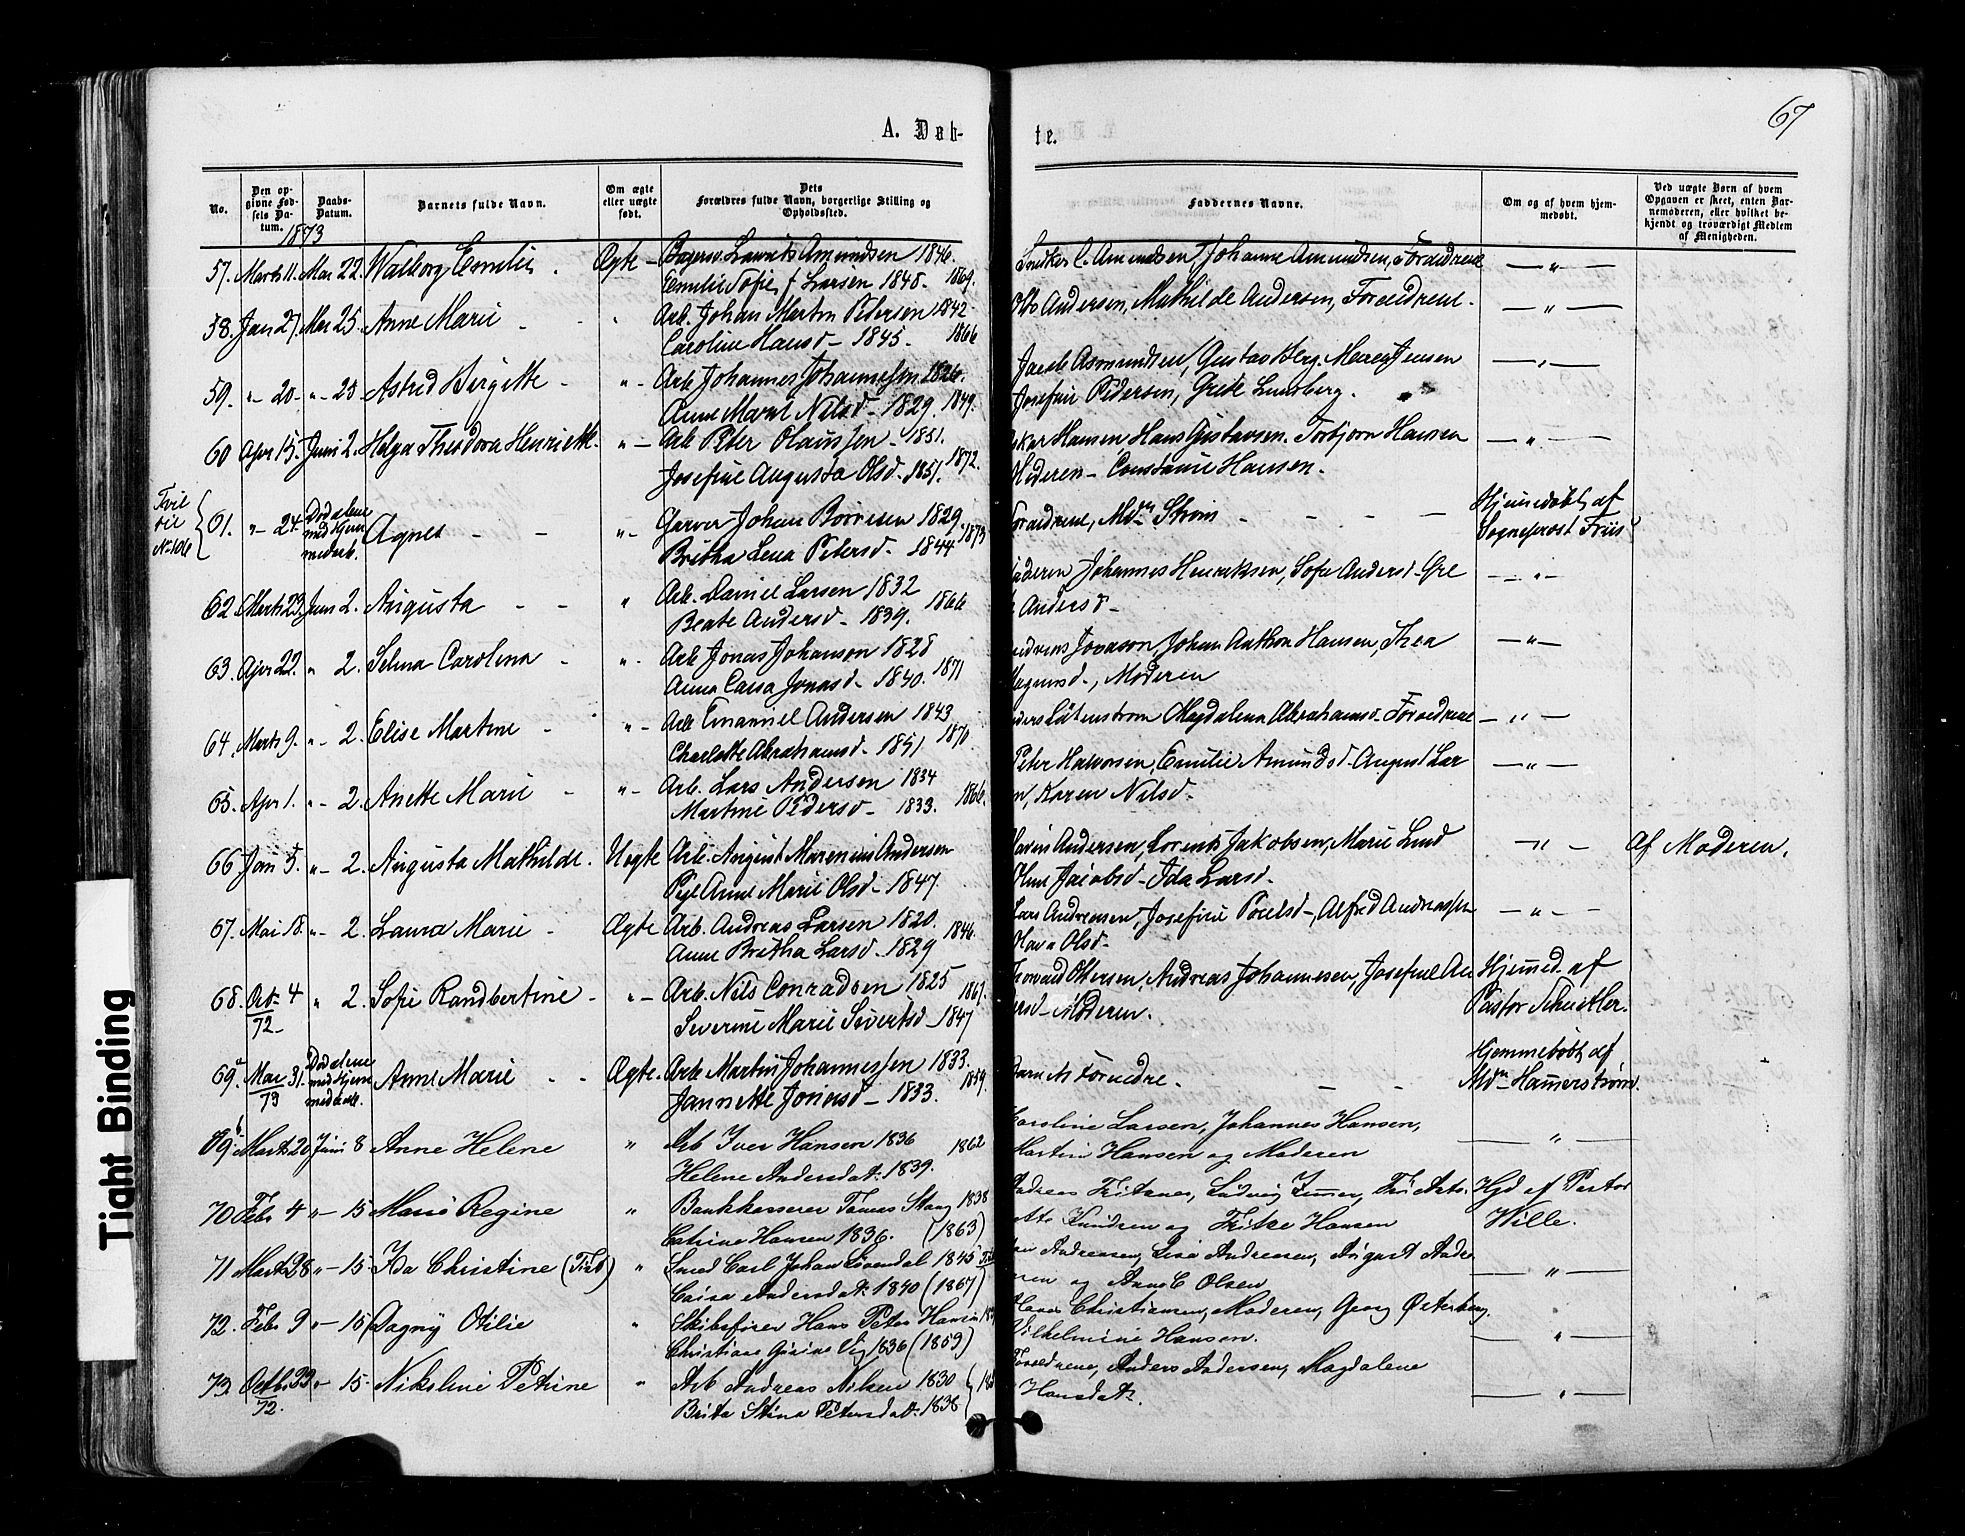 67
A. Døb-
te.
No.
Den op-
givne Fød-
sels Da-
tum.
Daabs-
Datum.
Barnets fulde Navn.
Om ægte
eller uægte
født.
Dets
Forældres fulde Navn, borgerlige Stilling og
Opholdssted.
Faddernes Navne.
Om og af hvem hjem-
medøbt.
Ved uægte Børn af hvem
Opgaven er skeet, enten Bar-
nemoderen, eller hvilket be-
kjendt og troværdigt Medlem
af Menigheden.
1873
57. Marts 11. Mai 22. Walborg Emilie. Ægte - Lauritz Amundsen 1846.
Emilie Sofie f Larsen 1848. 1869.
Snedker C. Amundsen, Johanne Amundsen, Forældrene — „ —
58. Jan 27. Mai 25. Anne Marie - „ Arb. Johan Martin Pedersen 1842
Caroline Hansd - 1845. 1866
Andersen, Mathilde Andersen, Forældrene. — „ —
59. „- 20. „- 25 Astrid Birgitte - „- Arb. Johannes Johannessen 1826.
Anne Marie Nilsd - 1829. 1849.
Jacob Asmundsen, Gustav Berg, Jensen — „ —
Josefine Pedersen, Grete Lundberg.
60 Apr 15. Juni 2. Helga Theodora Henriette. „- Arb. Peter Olaussen - 1851.
Josefine Augusta Olsd - 1851. 1872.
skar Hansen, Hans Gustavsen. Torbjørn Hansen — „ —
Moderen - Constance Hansen.
Tvil
No 106
61. „- 24. Død alene
med Hjem
medøb. Agnes - - „- Garver Johan Børresen 1829. 1873
Britha Lena Petersd - 1844
Forældrene, Mdm Strøm - - - Hjemmedøbt af
Sogneprest Friis
62. Marts 23. Juni 2. Augusta - - „ Arb. Daniel Larsen 1832
Beate Andersd - 1839. 1866
Moderen Johannes Henriksen, Sofie Andersd - — „ —
Andersd -
63. Apr 22. „ 2. Selma Carolina - „- Arb Jonas Johanson 1828
Anna Caisa Jonasd - 1840. 1871
Jonason, Johan Anthon Hansen, Thea — „ —
Magnusd -, Moderen
64. Marts 9. „- 2. Elise Martine - „- Arb Emanuel Andersen 1843
Charlotte Abrahamsd - 1851 1870
Magdalena Abrahamsd - Forældrene — „ —
65. Apr 1. „- 2. Anette Marie - „- Arb. Lars Andersen 1834
Martine Pedersd - 1833. 1866.
Peter Halvorsen, Emilie Amundsd - August Lar — „ —
n, Karen Nilsd -
66 Jan 5. „- 2. Augusta Mathilde. Uægte Arb. August Marenius Andersen
Pige Anne Marie Olsd - 1847.
Andersen, Lorents Jakobsen, Marie Lund — „ — Af Moderen.
Jacobsd - Ida Larsd -
67. Mai 18. „- 2. Laura Marie - Ægte Arb. Andreas Larsen 1820.
Anne Britha Larsd - 1829 1846.
Lars Andreasen, Josefine Poulsd -, Alfred Andreassen — „ —
Olsd -
68. Oct - 4
72 - „ 2. Sofie Randbertine - „- Arb. Nils Conradsen 1825
Severine Marie Sivertsd - 1847 1867.
Thorvald Ottersen, Andreas Johannesen, Josefine An Hjemmed. af
ersd - Moderen. Pastor
69 a Mar 31.
73 Død alene
med Hjem
medøb. Anne Marie - - Ægte. Arb. Martin Johannessen 1833.
Jannette Jonasd - 1833. 1859.
Barnets Forældre. - - Hjemmedøbt af
Mdm Hammerstrøm.
69 b Marts 20 Juni 8 Anne Helene „ Arb Iver Hansen 1836 1862
Helene Andersdat. 1839.
Caroline Larsen, Johannes Hansen,
Martin Hansen og Moderen — „ —
70 Febr 4 „- 15 Marie Regine „ Bankkasserer Tomas Stang 1838
Catrine Hansen 1836. (1863)
Andreas Ludvig
Knudsen og Hansen
Hjd af Pastor
Wille.
71 Marts 28 „- 15. Ida Christine „ Smed Carl Johan 1845
Caisa Andersdat. 1840 (1867)
Andreasen, Lise Andreasen, August Andre
sen og Anne C Olsen — „ —
72. Febr 9 „- 15 Dagny Otilie „ Skibsfører Hans Peter Hansen
Christiane Vig 1836 (1859)
Christiansen, Moderen, Georg Østerberg.
Vilhelmine Hansen. — „ —
73 Octbr 23
72. „- 15. Nikoline Petrine „ Arb Andreas Nilsen 1830
Brita Stina Petersdat. 1838
Forældrene, Anders Andersen, Magdalene
Hansdat. — „ —
Tight Binding